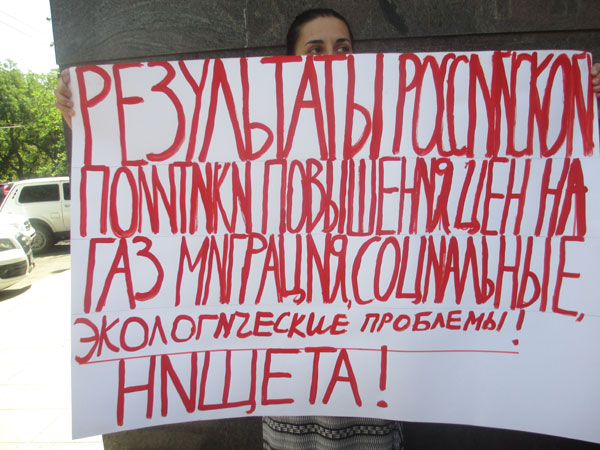 РЕЗУЛЬТАТЫ РОССИЙСКОЙ
ПОЛИТИКИ ПОВЫШЕНИЯ ЦЕН НА
ГАЗ МИГРАЦИЯ, СОЦИАЛЬНЫЕ,
ЭКОЛОГИЧЕСКИЕ ПРОБЛЕМЫ!
НИЩЕТА!